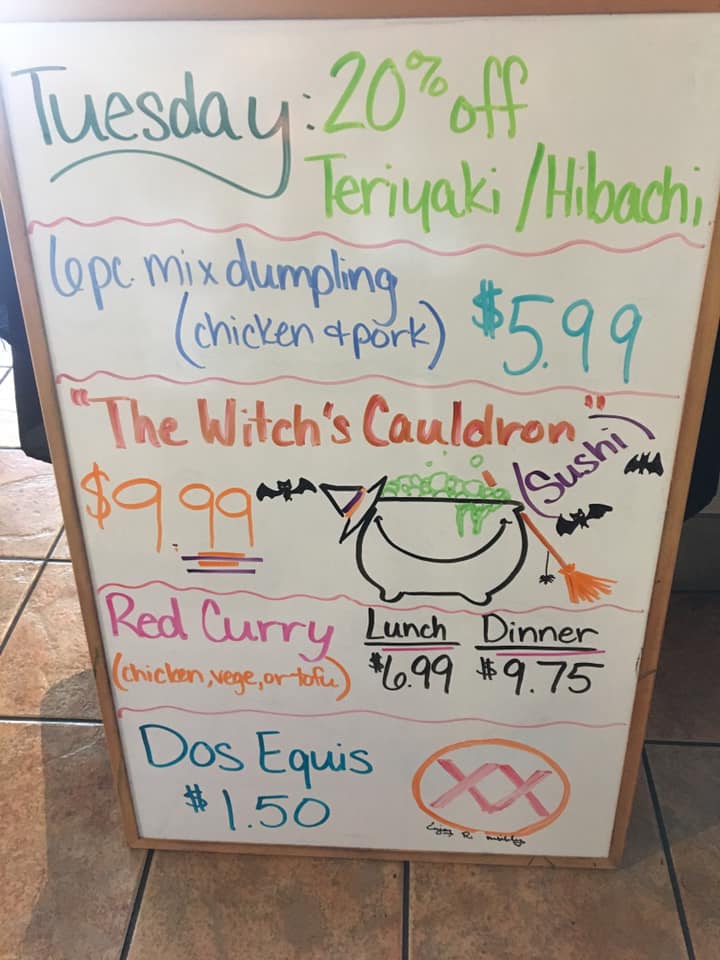 Tuesday: 20% off
Teriyaki/Hibachi
6pc. mix dumpling
(chicken & pork)
$5.99
"The Witch's Cauldron"
(Sushi)
$9.99
Red Curry
(chicken, vege, or tofu)
Lunch
$6.99
Dinner
$9.75
Dos Equis
$1.50
XX
Enjoy